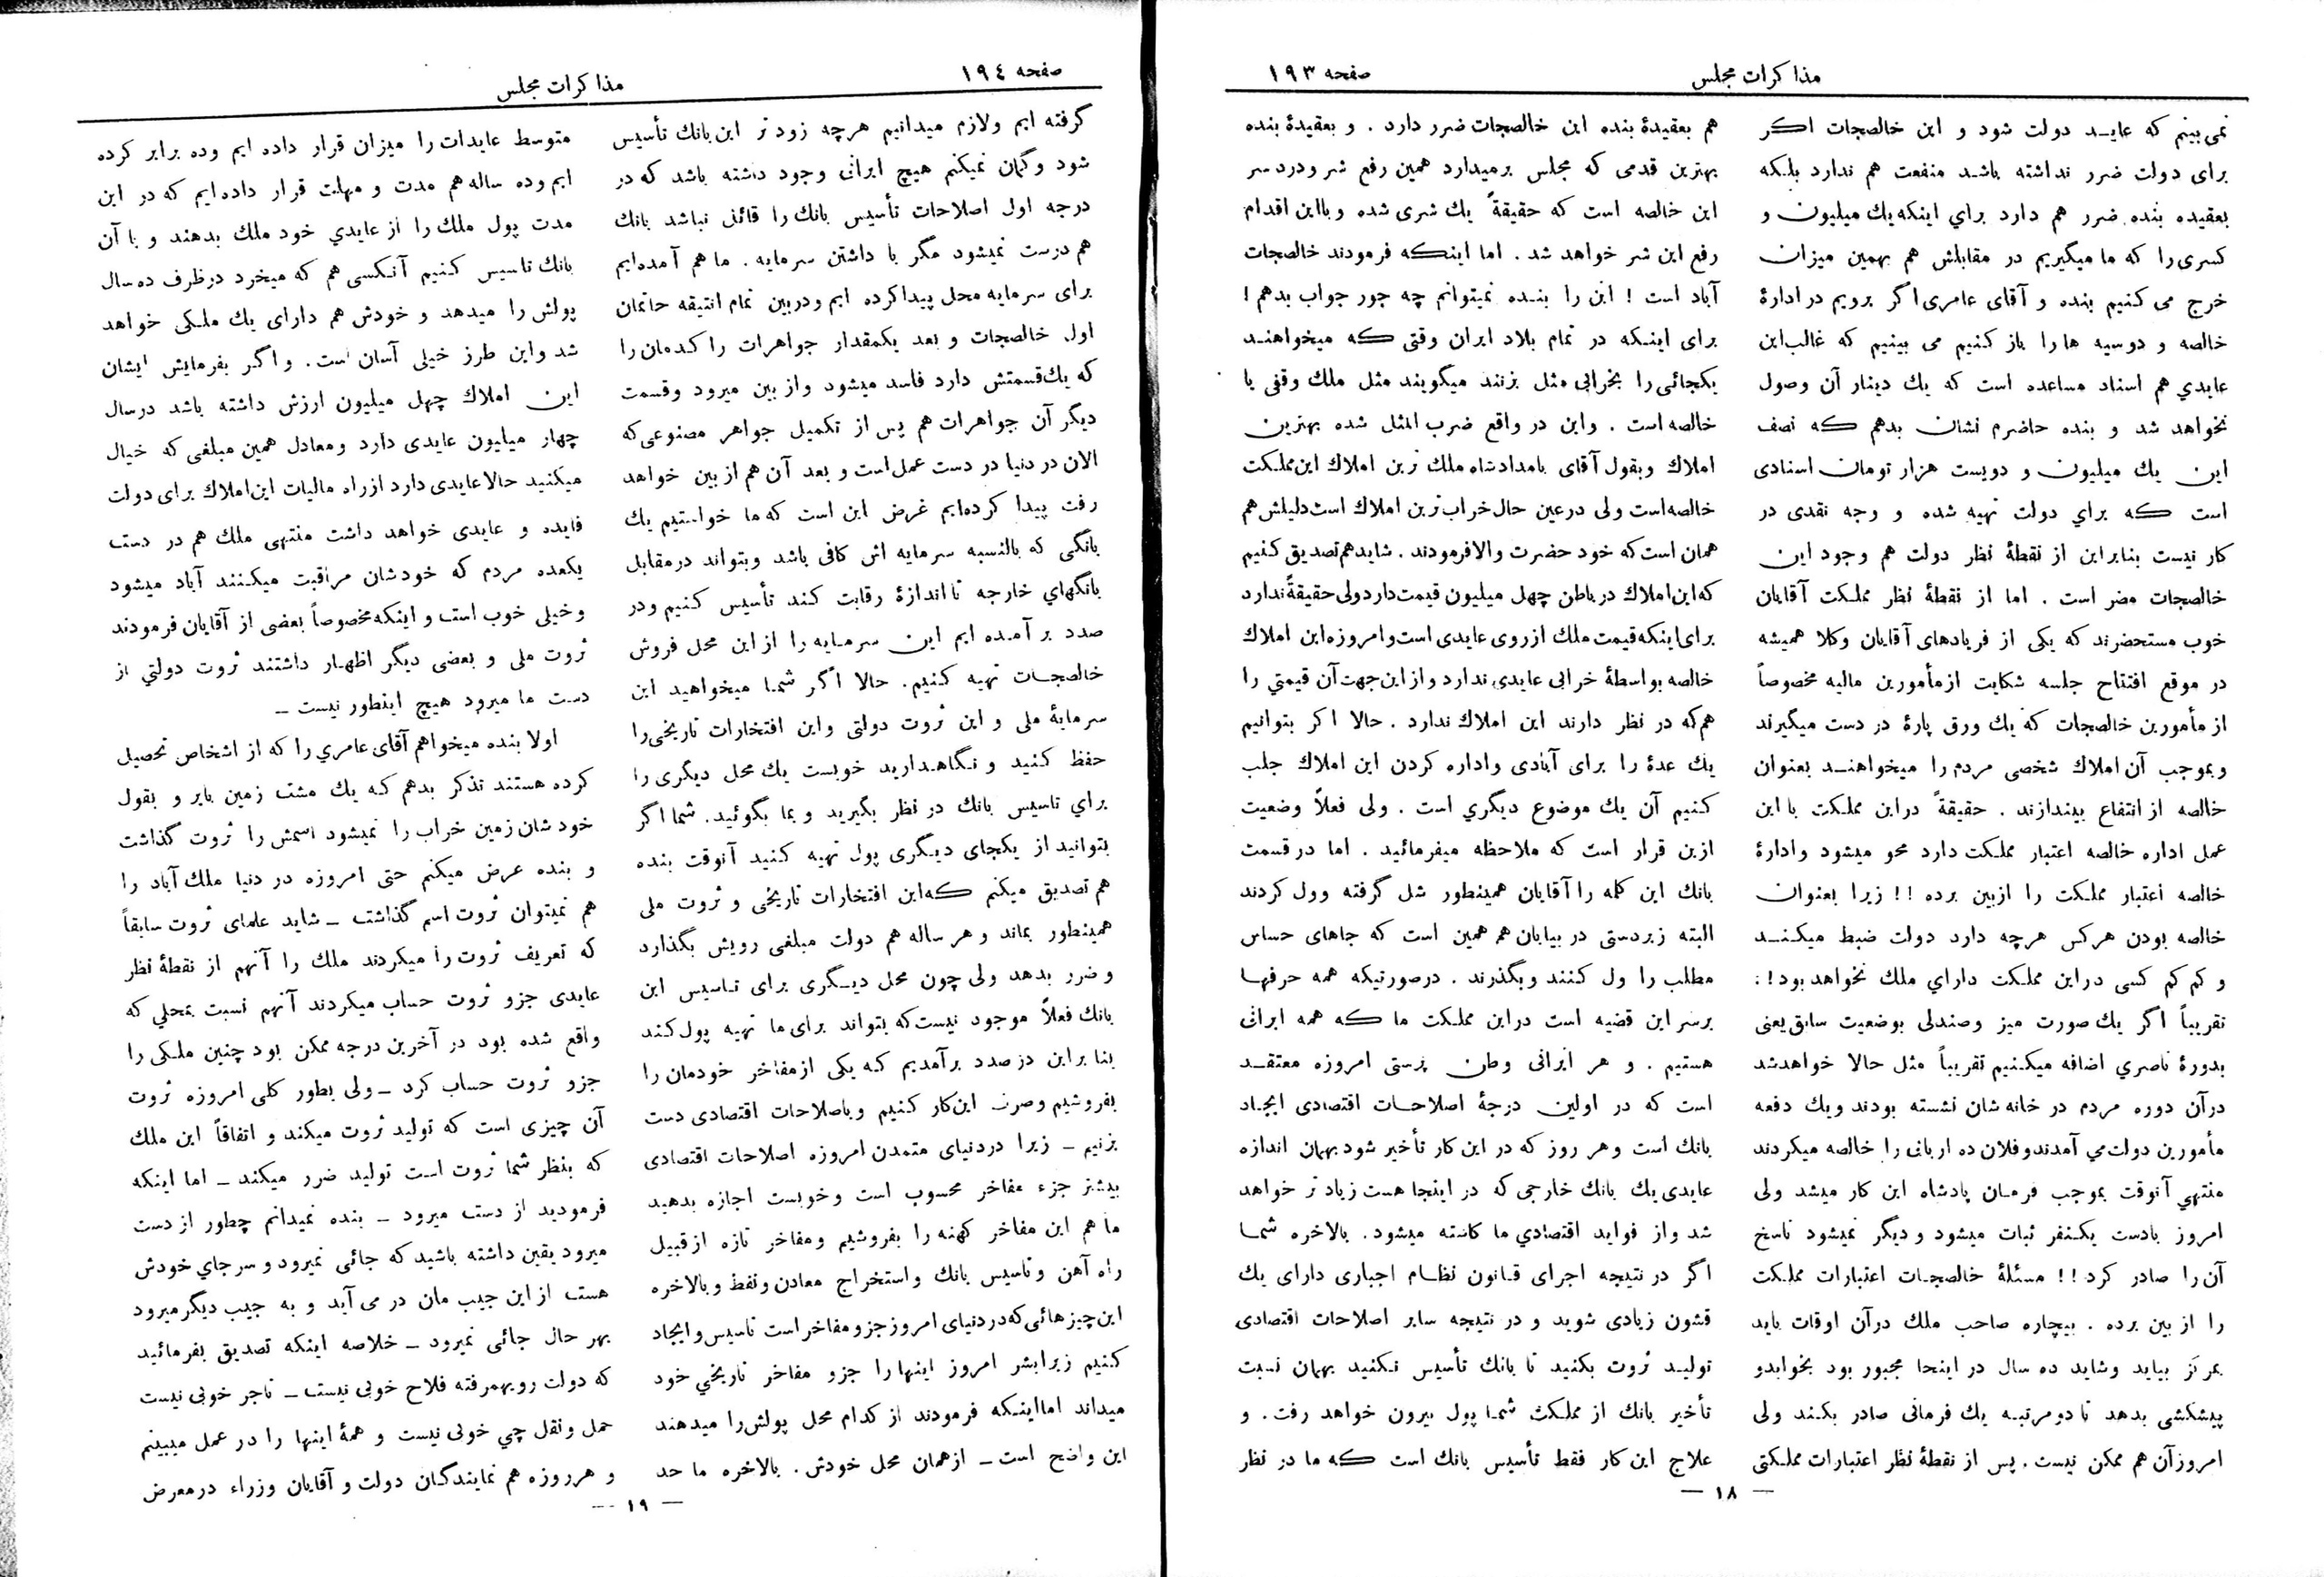 مذاکرات مجلس
صفحه ۱۹۳
نمی‌بینم که عایـد دولت شود و این خالصجات اگر
برای دولت ضرر نداشته باشد منفعت هم ندارد بلکه
بعقیده بنده ضرر هم دارد براي اینکه یك میلیون و
کسری را که ما میگیریم در مقابلش هم بهمین میزان
خرج می کنیم بنده و آقای عامری اگر برویم در ادارۀ
خالصه و دوسیه ها را باز کنیم می بینیم که غالب این
عایدي هم اسناد مساعده است که یك دینار آن وصول
نخواهد شد و بنده حاضرم نشان بدهم که نصف
این یك میلیون و دویست هزار تومان اسنادی
است که براي دولت تهیه شده و وجه نقدی در
کار نیست بنابراین از نقطۀ نظر دولت هم وجود این
خالصجات مضر است . اما از نقطۀ نظر مملکت آقایان
خوب مستحضرند که یکی از فریادهای آقایان وکلا همیشه
در موقع افتتاح جلسه شکایت از مأمورین مالیه مخصوصاً
از مأمورین خالصجات که یك ورق پارۀ در دست میگیرند
وبموجب آن املاك شخصی مردم را میخواهنـد بعنوان
خالصه از انتفاع بیندازند . حقیقةً دراین مملکت با این
عمل اداره خالصه اعتبار مملکت دارد محو میشود وادارۀ
خالصه اعتبار مملکت را ازبین برده !! زیرا بعنوان
خالصه بودن هرکس هرچه دارد دولت ضبط میکنـد
و کم کم کسی دراین مملکت داراي ملك نخواهد بود !:
تقریباً اگر یك صورت میز وصندلی بوضعیت سابق یعنی
بدورۀ ناصري اضافه میکنیم تقریباً مثل حالا خواهدشد
درآن دوره مردم در خانه شان نشسته بودند ویك دفعه
مأمورین دولت می آمدند وفلان ده اربابی را خالصه میکردند
منتهي آنوقت بموجب فرمـان پادشاه این کار میشد ولی
امروز بادست یکنفر ثبات میشود و دیگر نمیشود ناسخ
آن را صادر کرد !! مسئلۀ خالصجات اعتبارات مملکت
را از بین برده . بیچاره صاحب ملك درآن اوقات باید
بمرکز بیاید وشاید ده سال در اینجا مجبور بود بخوابدو
پیشکشی بدهد تا دو مرتبـه یك فرمانی صادر بکند ولی
امروز آن هم ممکن نیست . پس از نقطۀ نظر اعتبارات مملکتی
هم بعقیدۀ بنده این خالصجات ضرر دارد . و بعقیدۀ بنده
بهترین قدمی که مجلس برمیدارد همین رفع شر و درد سر
این خالصه است که حقیقةً یك شری شده و بااین اقدام
رفع این شر خواهد شد . اما اینکه فرمودند خالصجات
آباد است ! این را بنده نمیتوانم چه جور جواب بدهم !
برای اینکه در تمام بلاد ایران وقتی که میخواهنـد
یکجائی را بخرابی مثل بزنند میگویند مثل ملك وقفی یا
خالصه است . واین در واقع ضرب المثل شده بهترین
املاك وبقول آقای بامداد شاه ملك ترین املاك این مملکت
خالصه است ولی درعین حال خراب ترین املاك است دلیلش هم
همان است که خود حضرت والا فرمودند . شاید هم تصدیق کنیم
که این املاك در باطن چهل میلیون قیمت دارد ولی حقیقةً ندارد
برای اینکه قیمت ملك از روی عایدی است و امروزه این املاك
خالصه بواسطۀ خرابی عایدی ندارد و از این جهت آن قیمتي را
هم که در نظر دارند این املاك ندارد . حالا اکر بتوانیم
یك عدۀ را برای آبادی واداره کردن این املاك جلب
کنیم آن یك موضوع دیگري است . ولی فعلاً وضعیت
ازین قرار است که ملاحظه میفرمائید . اما در قسمت
بانك این کلمه را آقایان همینطور شل گرفته وول کردند
البته زبردستی در بیابان هم همین است که جاهای حساس
مطلب را ول کنند وبگذرند . درصورتیکه همه حرفهـا
برسر این قضیه است دراین مملکت ما که همه ایرانی
هستیم . و هر ایرانی وطن پرستی امروزه معتقـد
است که در اولین درجۀ اصلاحـات اقتصادی ایجـاد
بانك است وهر روز که در این کار تأخیر شود بهمان اندازه
عایدی یك بانك خارجی که در اینجا هست زیاد تر خواهد
شد واز فواید اقتصادي ما کاسته میشود . بالاخره شمـا
اگر در نتیجه اجرای قـانون نظـام اجباری دارای یك
قشون زیادی شوید و در نتیجه سایر اصلاحات اقتصادی
تولیـد ثروت بکنید تا بانك تأسیس نکنید بهمان نسبت
تأخیر بانك از مملکت شمـا پول بیرون خواهد رفت . و
علاج این کار فقط تأسیس بانك است که ما در نظر
— ۱۸ —
صفحه ۱۹٤
مذاکرات مجلس
گرفته ایم ولازم میدانیم هرچه زود تر این بانك تأسیس
شود و گمان نمیکنم هیچ ایرانی وجود داشته باشد که در
درجه اول اصلاحات تأسیس بانك را قائل نباشد بانك
هم درست نمیشود مگر با داشتن سرمایه . ما هم آمده ایم
برای سرمایه محل پیدا کرده ایم ودر بین تمام انتیقه جاتمان
اول خالصجات و بعد یکمقدار جواهرات را کدمان را
که یك قسمتش دارد فاسد میشود واز بین میرود وقسمت
دیگر آن جواهرات هم پس از تکمیل جواهر مصنوعی که
الان در دنیا در دست عمل است و بعد آن هم از بین خواهد
رفت پیدا کرده ایم غرض این است که ما خواستیم یك
بانگی که بالنسبه سرمایه اش کافی باشد وبتواند در مقابل
بانگهاي خارجه تا اندازۀ رقابت کند تأسیس کنیم ودر
صدد بر آمده ایم این سرمایه را از این محل فروش
خالصجـات تهیه کنیم . حالا اگر شمـا میخواهید این
سرمایۀ ملی و این ثروت دولتی واین افتخارات تاریخی را
حفظ کنید و نگاهـدارید خوبست یك محل دیگری را
براي تاسیس بانك در نظر بگیرید و بما بگوئید . شما اگر
بتوانید از یکجای دیگری پول تهیه کنید آنوقت بنده
هم تصدیق میکنم که این افتخارات تاریخی و ثروت ملی
همینطور بماند و هر ساله هم دولت مبلغی رویش بگذارد
و ضرر بدهد ولی چون محل دیـگری برای تـاسیس این
بانك فعلاً موجود نیست که بتواند برای ما تهیه پول کند
بنا براین در صدد برآمدیم که یکی از مفاخر خودمان را
بفروشیم وصرف این کار کنیم وباصلاحات اقتصادی دست
بزنیم ـ زیرا در دنیای متمدن امروزه اصلاحات اقتصادی
بیشتر جزء مفاخر محسوب است وخوبست اجازه بدهید
ما هم این مفاخر کهنه را بفروشیم ومفاخر تازه ازقبیل
راه آهن وتاسیس بانك واستخراج معادن ونفط وبالاخره
این چیزهائی که در دنیای امروز جزو مفاخر است تاسیس وایجاد
کنیم زیرا بشر امروز اینها را جزو مفاخر تاریخي خود
میداند اما اینکه فرمودند از کدام محل پولش را میدهند
این واضح است ـ از همان محل خودش . بالاخره ما حد
متوسط عایدات را میزان قرار داده ایم وده برابر کرده
ایم وده ساله هم مدت و مهلت قرار داده ایم که در این
مدت پول ملك را از عایدي خود ملك بدهند و با آن
بانك تاسیس کنیم آنکسی هم که میخرد درظرف ده سال
پولش را میدهد و خودش هم دارای یك ملکی خواهد
شد واین طرز خیلی آسان است . و اگر بفرمایش ایشان
این املاك چهل میلیون ارزش داشته باشد درسال
چهار میلیون عایدی دارد ومعادل همین مبلغی که خیال
میکنید حالا عایدی دارد از راه مالیات این املاك برای دولت
فایده و عایدی خواهد داشت منتهی ملك هم در دست
یکعده مردم که خودشان مراقبت میکنند آباد میشود
وخیلی خوب است و اینکه مخصوصاً بعضی از آقایان فرمودند
ثروت ملی و بعضی دیگر اظهار داشتند ثروت دولتي از
دست ما میرود هیچ اینطور نیست ـ
اولا بنده میخواهم آقای عامري را که از اشخاص تحصیل
کرده هستند تذکر بدهم که یك مشت زمین بایر و بقول
خودشان زمین خراب را نمیشود اسمش را ثروت گذاشت
و بنده عرض میکنم حتی امروزه در دنیا ملك آباد را
هم نمیتوان ثروت اسم گذاشت ـ شاید علمای ثروت سابقاً
که تعریف ثروت را میکردند ملك را آنهم از نقطۀ نظر
عایدی جزو ثروت حساب میکردند آنهم نسبت بمحلي که
واقع شده بود در آخرین درجه ممکن بود چنین ملکی را
جزو ثروت حساب کرد ـ ولی بطور کلی امروزه ثروت
آن چیزی است که تولید ثروت میکند و اتفاقاً این ملك
که بنظر شما ثروت است تولید ضرر میکند ـ اما اینکه
فرمودید از دست میرود ـ بنده نمیدانم چطور از دست
میرود یقین داشته باشید که جائی نمیرود و سر جاي خودش
هست از این جیب مان در می آید و به جیب دیگر میرود
بهر حال جائی نمیرود ـ خلاصه اینکه تصدیق بفرمائید
که دولت رویهمرفته فلاح خوبی نیست ـ تاجر خوبی نیست
حمل ونقل چي خوبی نیست و همۀ اینها را در عمل میبینم
و هر روزه هم نمایندگان دولت و آقایان وزراء در معرض
— ۱۹ —